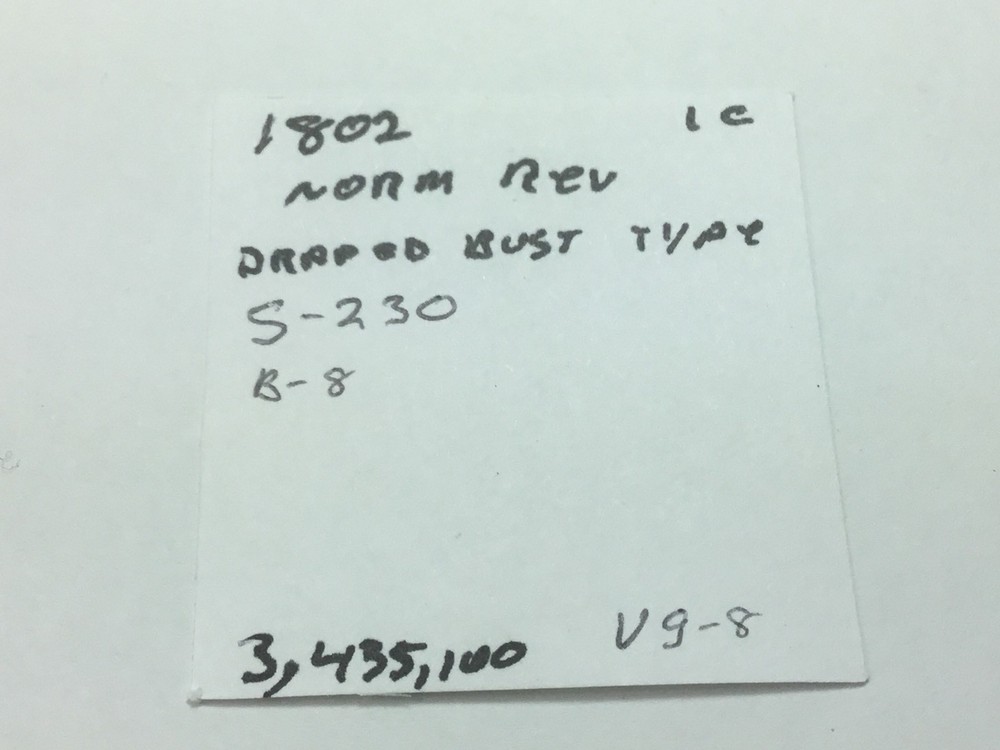 1802 1C
NORM Rev
DRAPED BUST TYPe
S-230
B-8
3,435,100 VG-8